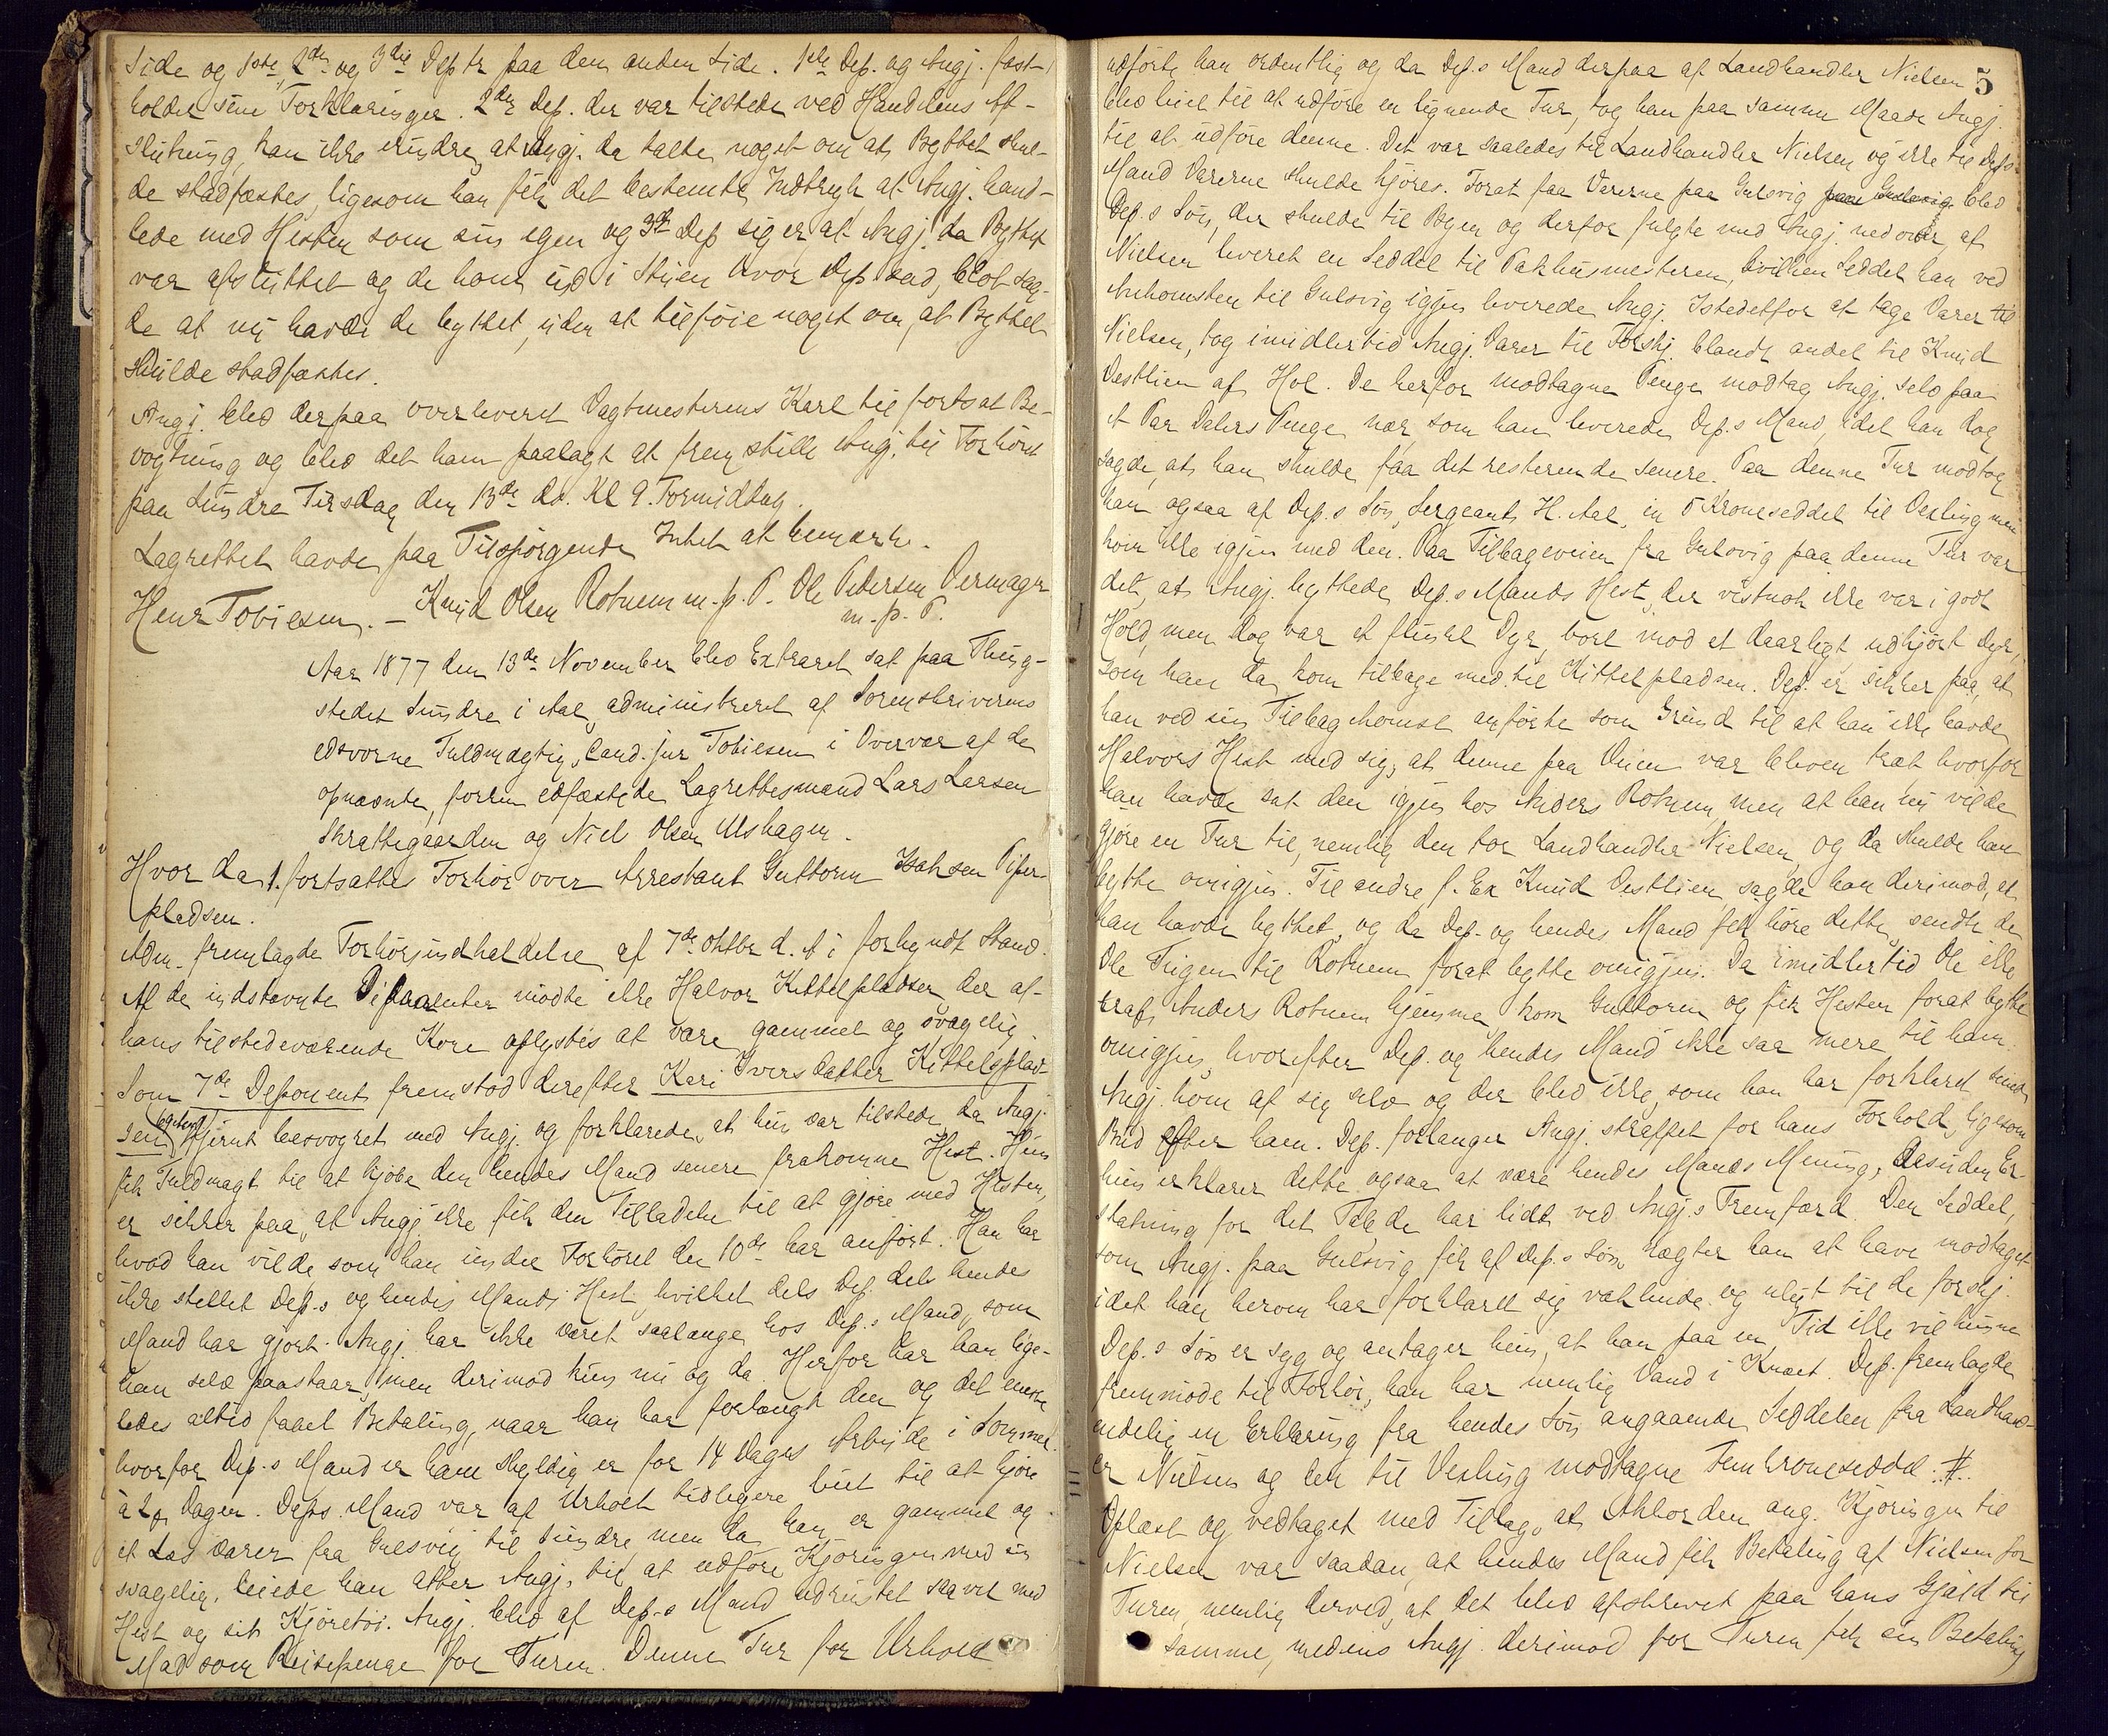 Side og 1ste, 2den og 3die Deptr paa den anden Side. 1ste Dep. og Angj. fast-
holder sine Forklaringer. 2den Dep. der var tilstede ved Handelens Af-
slutning, kan ikke erindre, at Angj. da talte noget om at Byttet skul-
de stadfæstes, ligesom han fik det bestemte Indtryk at Angj. hand-
lede med Hesten som sin egen og 3die Dep siger, at Angj. da Byttet
var afsluttet og de kom ud i Skjen hvor Dep sad, blot sag-
de at nu havde de byttet, uden at tilføie noget om, at Byttet
skulde stadfæstes.
Angj. blev derpaa overleveret Vagtmesterens Karl til fortsat Be-
vogtning og blev det ham paalagt at fremstille Angj. til Forhøret
paa Sundre Tirsdag den 13de ds. Kl 9. Formiddag.
Lagrettet havde paa Tilspørgende Intet at bemærke.
Henr Tobiesen. - Knud Olsen Rotneim m. p. P. Ole Pedersen Vermager
m. p. P.
Aar 1877 den 13de November blev Extraret sat paa Thing-
stedet Sundre i Aal, administreret af Sorenskriverens
edsvorne Fuldmægtig, Cand. jur Tobiesen i Overvær af de
opnævnte, forhen edfæstede Lagrettesmænd Lars Larsen
Skrattegaarden og Niels Olsen Ulshagen.
Hvor da 1. fortsattes Forhør over Arrestant Guttorm Isaksen Piper-
pladsen.
Adm. fremlagde Forhørsindkaldelse af 7de Oktbr d. A i forkyndt Stand.
Af de indstævnte Deponenter mødte ikke Halvor Kittelpladsen der af
hans tilstedeværende Kone oplystes at være gammel og svagelig
Som 7de Deponent fremstod derefter Kari Iversdatter Kittelsplad-
sen fjernt besvogret med Angj. og forklarede, at hun var tilstede, da Angj.
fik Fuldmagt til at kjøbe den hendes Mand senere frakomne Hest. Hun
er sikker paa, at Angj ikke fik den Tilladelse til at gjøre med Hesten,
hvad han vilde, som han under Forhøret den 10de har anført. Han har
ikke stellet Dep.s og hendes Mands Hest, hvilket dels Dep. dels hendes
Mand har gjort. Angj. har ikke været saalænge hos Dep.s Mand, som
han selv paastaar, men derimod kun nu og da. Herfor har han lige-
ledes altid faaet Betaling, naar han har forlangt den og det eneste
hvorfor Dep.s Mand er ham skyldig er for 14 Dages Arbeide i Sommer
à Dagen. Deps. Mand var af Urholt tidligere leiet til at kjøre
et Læs Varer fra Gulsvig til Sundre men da han er gammel og
svagelig, leiede han atter Angj. til at udføre Kjøringen med sin
Hest og sit Kjøretøi. Angj. blev af Dep.s Mand udrustet saavel med
Mad som Reisepenge for Turen. Denne Tur for Urholt
5
udførte han ordentlig og da Dep.s Mand derpaa af Landhandler Nielsen
blev leiet til at udføre en lignende Tur, tog han paa samme Maade Angj.
til at udføre denne. Det var saaledes til Landhandler Nielsen og ikke til Dep.s
Mand Varerne skulde kjøres. Forat faa Varerne paa Gulsvig blev
Dep.s Søn, der skulde til Byen og derfor fulgte med Angj. nedover, af
Nielsen leveret en Seddel til Pakhusmesteren, hvilken Seddel han ved
Ankomsten til Gulsvig igjen leverede Angj. Istedetfor at tage Varer til
Nielsen, tog imidlertid Angj. Varer til Forskj. blandt andet til Knud
Vestlien af Hol. De herfor modtagne Penge modtog Angj. selv paa
et Par Dalers Penge nær, som han leverede Dep.s Mand, idet han dog
sagde, at han skulde faa det resterende senere. Paa denne Tur modtog
han ogsaa af Dep.s Søn, Sergeant H. Aal, en 5 Kroneseddel til Vexling men
kom ikke igjen med den. Paa Tilbageveien fra Gulsvig paa denne Tur var
det, at Angj. byttede Dep.s Mands Hest, der vistnok ikke var i godt
Hold, men dog var et flinkt Dyr, bort mod et daarligt, udkjørt Dyr,
som han da kom tilbage med til Kittelpladsen. Dep. er sikker paa, at
han ved sin Tilbagekomst anførte som Grund til at han ikke havde
Halvors Hest med sig, at denne paa Veien var bleven træt hvorfor
han havde sat den igjen hos Anders Rotneim, men at han nu vilde
gjøre en Tur til, nemlig den for Landhandler Nielsen, og da skulde han
bytte omigjen. Til andre f. Ex Knud Vestlien sagde han derimod, at
han havde byttet, og da Dep. og hendes Mand fik høre dette, sendte de
Ole Trigen til Rotneim forat bytte omigjen. Da imidlertid Ole ikke
traf Anders Rotneim hjemme, kom Guttorm og fik Hesten forat bytte
omigjen, hvorefter Dep. og hendes Mand ikke saa mere til ham.
Angj. kom af sig selv og der blev ikke, som han har forklaret sendt
Bud efter ham. Dep. forlanger Angj. straffet for hans Forhold, ligesom
hun erklærer dette ogsaa at være hendes Mands Mening, desuden Er-
statning for det Tab de har lidt ved Angj.s Fremfærd. Den Seddel,
som Angj. paa Gulsvig fik af Dep.s Søn, nægter han at have modtaget
idet han herom har forklaret sig vaklende og ulygt til de forskj.
Dep.s Søn er syg og antager hun, at han paa en Tid ikke vil kunne
fremmøde til Forhør, han har nemlig Vand i Knæet. Dep. fremlagde
endelig en Erklæring fra hendes Søn angaaende Seddelen fra Landhand-
ler Nielsen og den til Vexling modtagne Femkroneseddel. #.
Oplæst og vedtaget med Tillæg, at Akkorden ang. Kjøringen til
Nielsen var saadan, at hendes Mand fik Betaling af Nielsen for
Turen, nemlig derved, at det blev afskrevet paa hans Gjæld til
samme, medens Angj. derimod for Turen fik sin Betaling